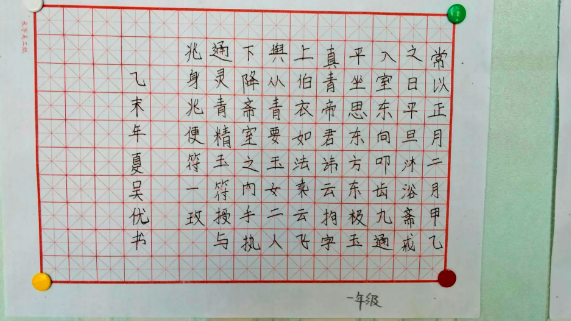 常以正月二月甲乙
之日平旦沐浴斋戒
入室东向叩齿九通
平坐思东方东极玉
真青帝君讳云拘字
上伯衣如法乘云飞
舆从青要玉女二人
下降斋室之内手执
通灵青精玉符授与
兆身兆便符一玫
乙末年夏吴优书
一年级